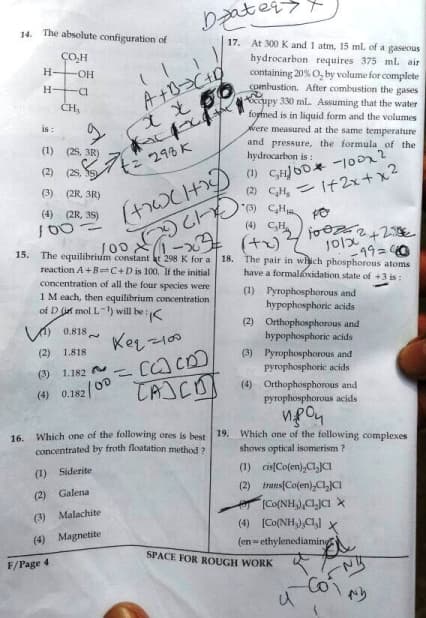 14. The absolute configuration of
CO₂H
H OH
H Cl
CH₃
is :
(1) (2S, 3R)
(2) (2S, 3S)
(3) (2R, 3R)
(4) (2R, 3S)
t = 298K
A+B⇌C+D
15. The equilibrium constant at 298 K for a
reaction A+B⇌C+D is 100. If the initial
concentration of all the four species were
1 M each, then equilibrium concentration
of D (in mol L⁻¹) will be :
(1) 0.818
(2) 1.818
(3) 1.182
(4) 0.182
Keq = 100
100 = [C] [D]
16. Which one of the following ores is best
concentrated by froth floatation method ?
(1) Siderite
(2) Galena
(3) Malachite
(4) Magnetite
F/Page 4
17. At 300 K and 1 atm, 15 mL of a gaseous
hydrocarbon requires 375 mL air
containing 20% O₂ by volume for complete
combustion. After combustion the gases
occupy 330 mL. Assuming that the water
formed is in liquid form and the volumes
were measured at the same temperature
and pressure, the formula of the
hydrocarbon is :
(1) C₃H₈
(2) C₄H₈
(3) C₄H₁₀
(4) C₃H₆
18. The pair in which phosphorous atoms
have a formal oxidation state of +3 is :
(1) Pyrophosphorous and
hypophosphoric acids
(2) Orthophosphorous and
hypophosphoric acids
(3) Pyrophosphorous and
pyrophosphoric acids
(4) Orthophosphorous and
pyrophosphorous acids
19. Which one of the following complexes
shows optical isomerism ?
(1) cis[Co(en)₂Cl₂]Cl
(2) trans[Co(en)₂Cl₂]Cl
[Co(NH₃)₄Cl₂]Cl
(4) [Co(NH₃)₃Cl₃]
(en = ethylenediamine)
SPACE FOR ROUGH WORK